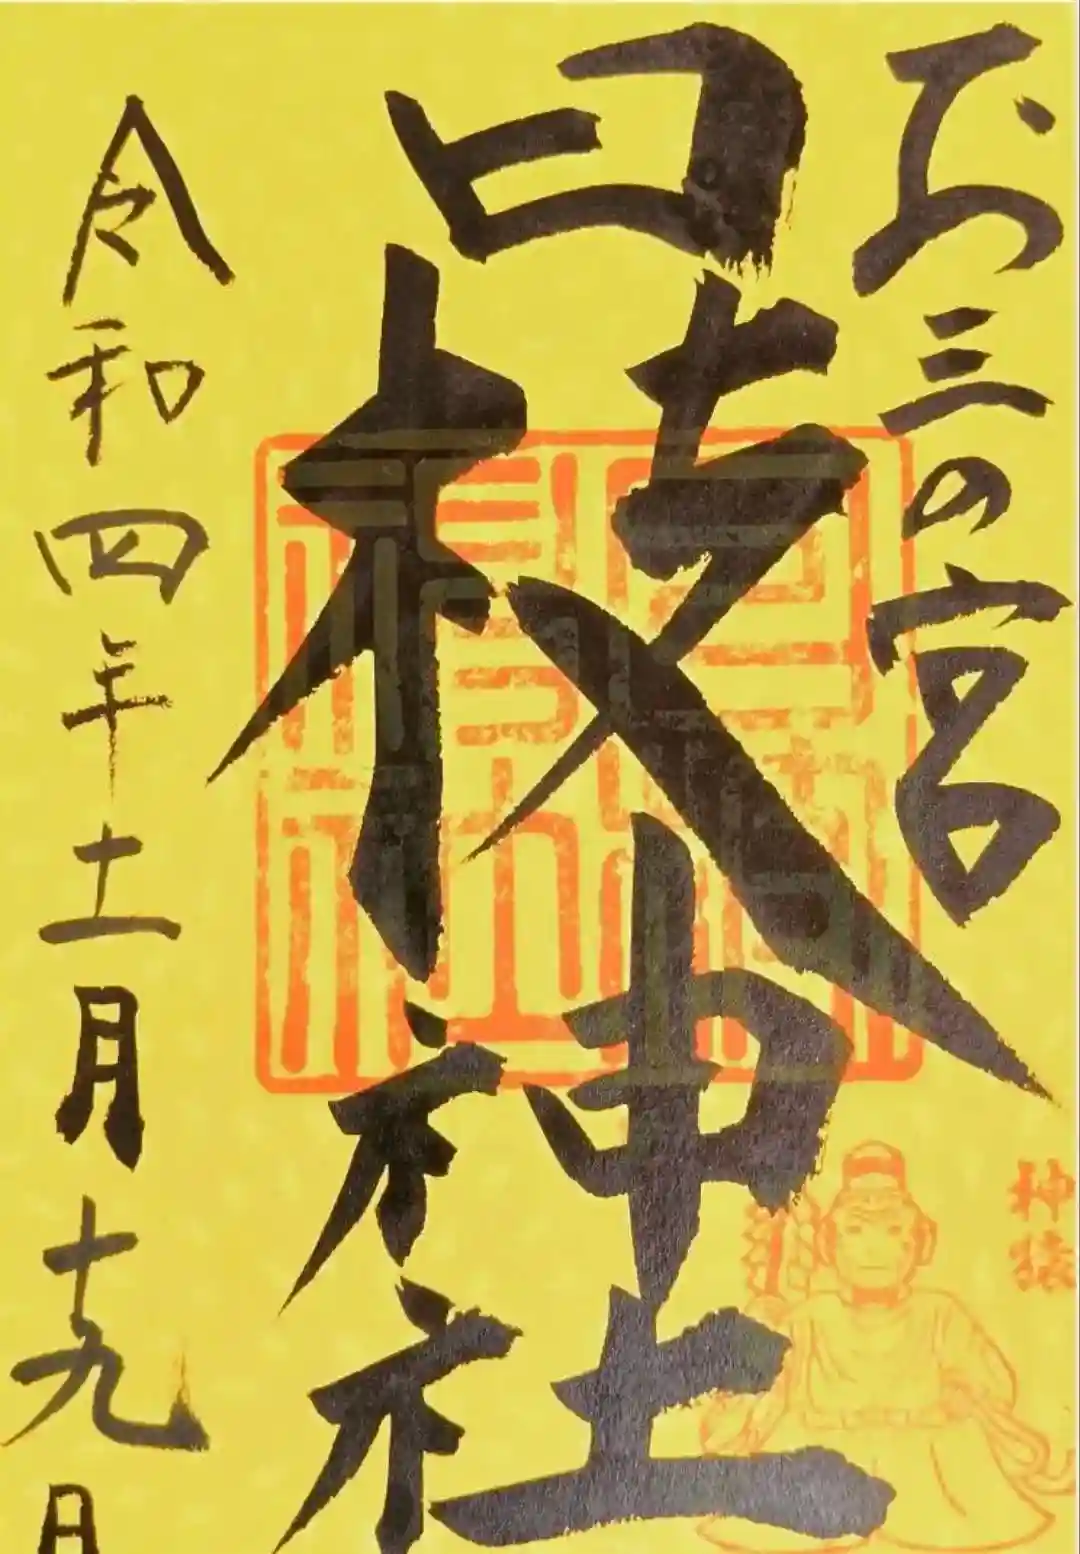 お三の宮
神猿
日枝神社
令和四年十一月十九日